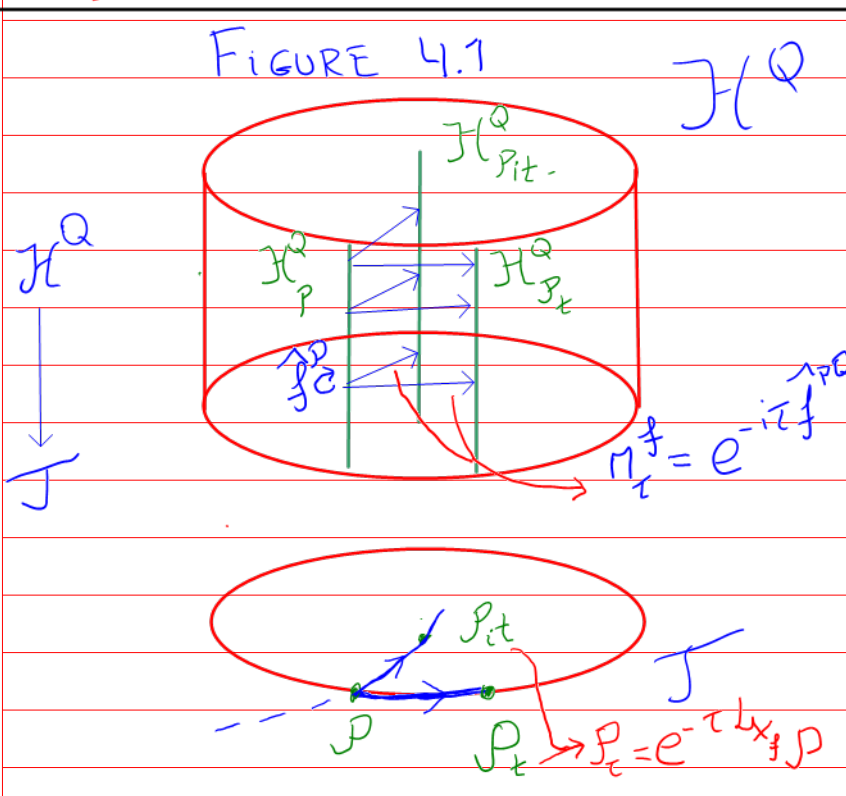 FIGURE 4.1
ℋ^Q
ℋ^Q_{𝒫it}
ℋ^Q
ℋ^Q_𝒫
ℋ^Q_{𝒫t}
= e^{-iτ f̂^{PQ}}
𝒯
𝒫_{it}
𝒯
𝒫
𝒫_t
𝒫_τ = e^{-τ L_{X_f}} 𝒫